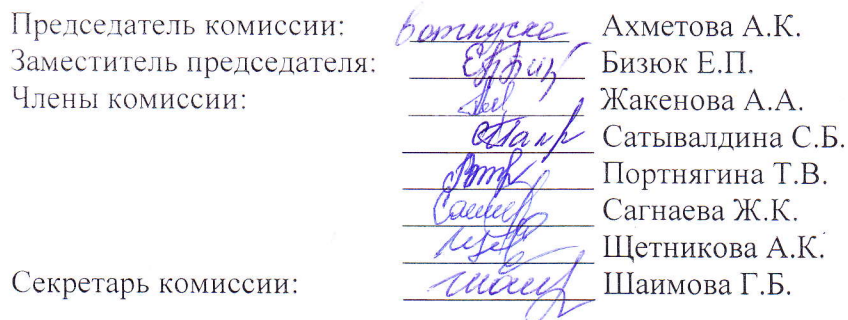 Председатель комиссии: в отпуске Ахметова А.К.
Заместитель председателя: Бизюк Е.П.
Члены комиссии: Жакенова А.А.
Сатывалдина С.Б.
Портнягина Т.В.
Сагнаева Ж.К.
Щетникова А.К.
Секретарь комиссии: Шаимова Г.Б.